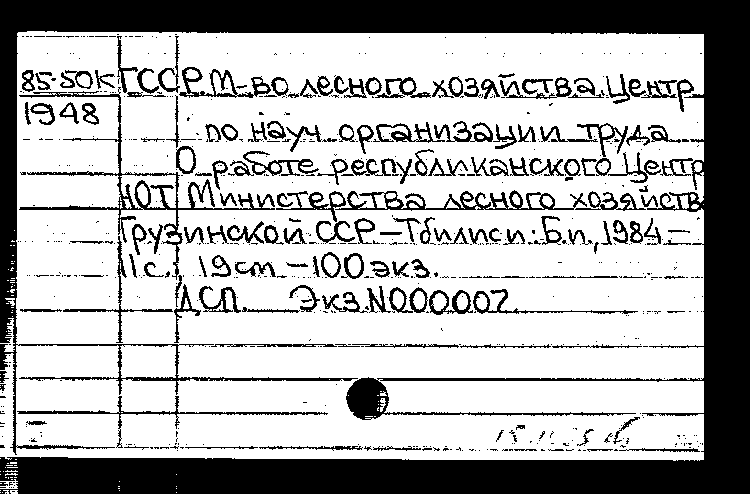 85-50К ГССР М-во лесного хозяйства. Центр
1948
по науч. организации труда
О работе республиканского Центр
НОТ Министерства лесного хозяйства
Грузинской ССР. – Тбилиси: Б.и., 1984 –
11 с.; 19 см. – 100 экз.
ДСП. Экз.N000007.